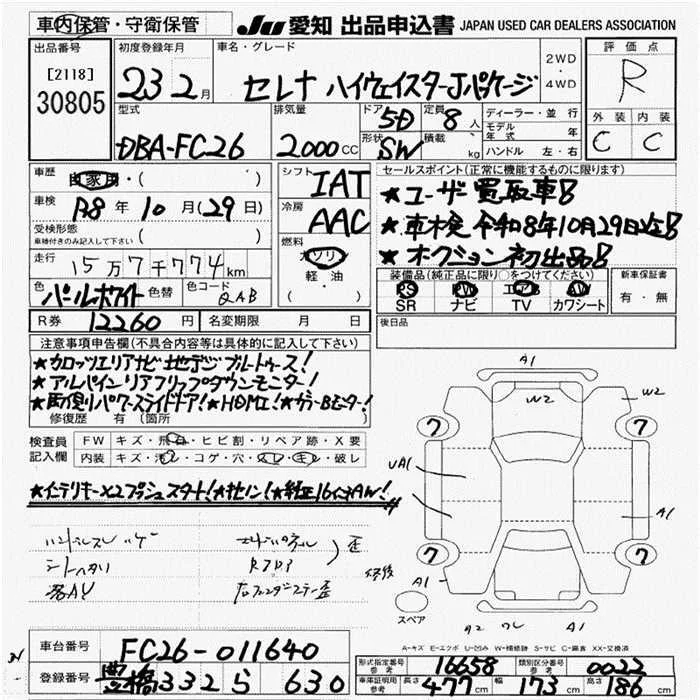 車内保管・守衛保管
JU 愛知 出品申込書 JAPAN USED CAR DEALERS ASSOCIATION
出品番号
[2118]
30805
初度登録年月
23 2月
車名・グレード
セレナ ハイウェイスターJパッケージ
2WD
・
4WD
評価点
R
型式
DBA-FC26
排気量
2000CC
ドア
5D
形状
SW
定員
8人
積載
kg
ディーラー・並行
モデル年式 年
ハンドル 左・右
外装 内装
C C
車歴
自家用・( )
車検
R8年10月(29日)
受検形態
車検付きのみ記入して下さい ( )
走行
15万7千774km
色
パールホワイト
色替
色コード
QAB
シフト
IAT
冷房
AAC
燃料
ガソリン
軽・油
( ・ )
セールスポイント(正常に機能するものに限ります)
★ユーザー買取車!
★車検令和8年10月29日迄!
★オークション初出品!
装備品(純正品に限り○をつけてください)
PS PW エアB AW
SR ナビ TV カワシート
新車保証書
有・無
R券 12260円
名変期限 月 日
後日品
注意事項申告欄(不具合内容等は具体的に記入して下さい)
★カロッツェリアナビ地デジブルートゥース!
★アルパインリアフリップダウンモニター!
★両側パワースライドドア!★HDMI!★カラーBモニター!
修復歴 有(箇所 )
検査員
記入欄
FW キズ・飛石・ヒビ割・リペア跡・X要
内装 キズ・汚レ・コゲ・穴・スレ・キレ・破レ
★インテリキー×2プッシュスタート!★キセノン!★純正16インチAW!
ハンドルスレ
シートヘタリ
歪
修後
右フェンダーステー歪
A1
W2
W2
7
7
UA1
A1
7
7
A1
スペア
A2
A1
A-キズ E-エクボ U-凹み W-補修跡 S-サビ C-腐食 XX-交換済
車台番号
FC26-011640
登録番号
豊橋 332 ら 630
形式指定番号
参考
16658
類別区分番号
参考
0022
車庫証明用
参考
長さ 477cm 幅 173cm 高さ 186cm